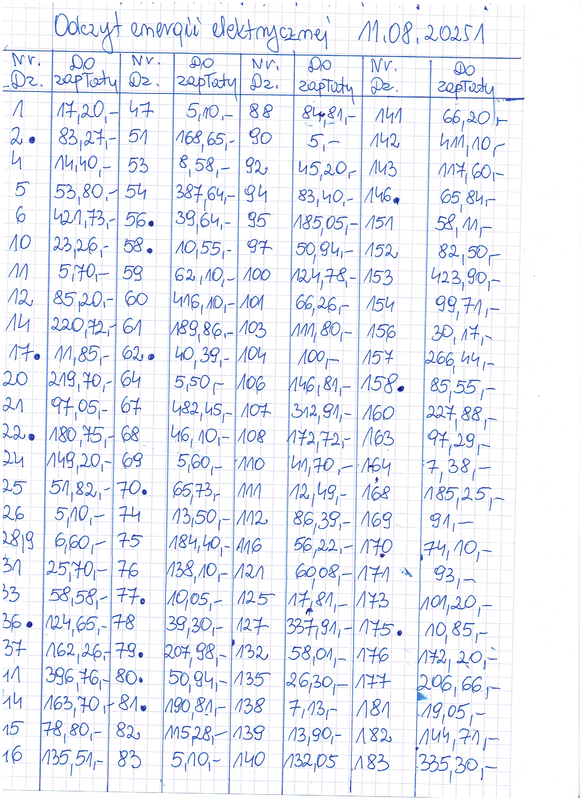 Odczyt energii elektrycznej 11.08.2025r
Nr. Dz. DO zapłaty Nr. Dz. DO zapłaty Nr. Dz. DO zapłaty Nr. Dz. DO zapłaty
1 17,20,- 47 5,10,- 88 84,81,- 141 66,20,-
2. 83,27,- 51 168,65,- 90 5,- 142 411,10,-
4 14,40,- 53 8,58,- 92 45,20,- 143 117,60,-
5 53,80,- 54 387,64,- 94 83,40,- 146. 65,84,-
6 421,73,- 56. 39,64,- 95 185,05,- 151 58,11,-
10 23,26,- 58. 10,55,- 97 50,94,- 152 82,50,-
11 5,70,- 59 62,10,- 100 124,78,- 153 423,90,-
12 85,20,- 60 416,10,- 101 66,26,- 154 99,71,-
14 220,72,- 61 189,86,- 103 111,80,- 156 30,17,-
17. 11,85,- 62. 40,39,- 104 100,- 157 266,44,-
20 219,70,- 64 5,50,- 106 146,81,- 158. 85,55,-
21 97,05,- 67 482,45,- 107 312,91,- 160 227,88,-
22. 180,75,- 68 46,10,- 108 172,72,- 163 97,29,-
24 149,20,- 69 5,60,- 110 41,70,- 164 7,38,-
25 51,82,- 70. 65,73,- 111 12,49,- 168 185,25,-
26 5,10,- 74 13,50,- 112 86,39,- 169 91,-
28,9 6,60,- 75 184,40,- 116 56,22,- 170 74,10,-
31 25,70,- 76 138,10,- 121 60,08,- 171 93,-
33 58,58,- 77. 10,05,- 125 17,81,- 173 101,20,-
36. 124,65,- 78 39,30,- 127 337,91,- 175. 10,85,-
37 162,26,- 79. 207,98,- 132 58,01,- 176 172,20,-
11 396,76,- 80. 50,94,- 135 26,30,- 177 206,66,-
14 163,70,- 81. 190,81,- 138 7,13,- 181 19,05,-
15 78,80,- 82 115,28,- 139 13,90,- 182 144,71,-
16 135,51,- 83 5,10,- 140 132,05 183 335,30,-